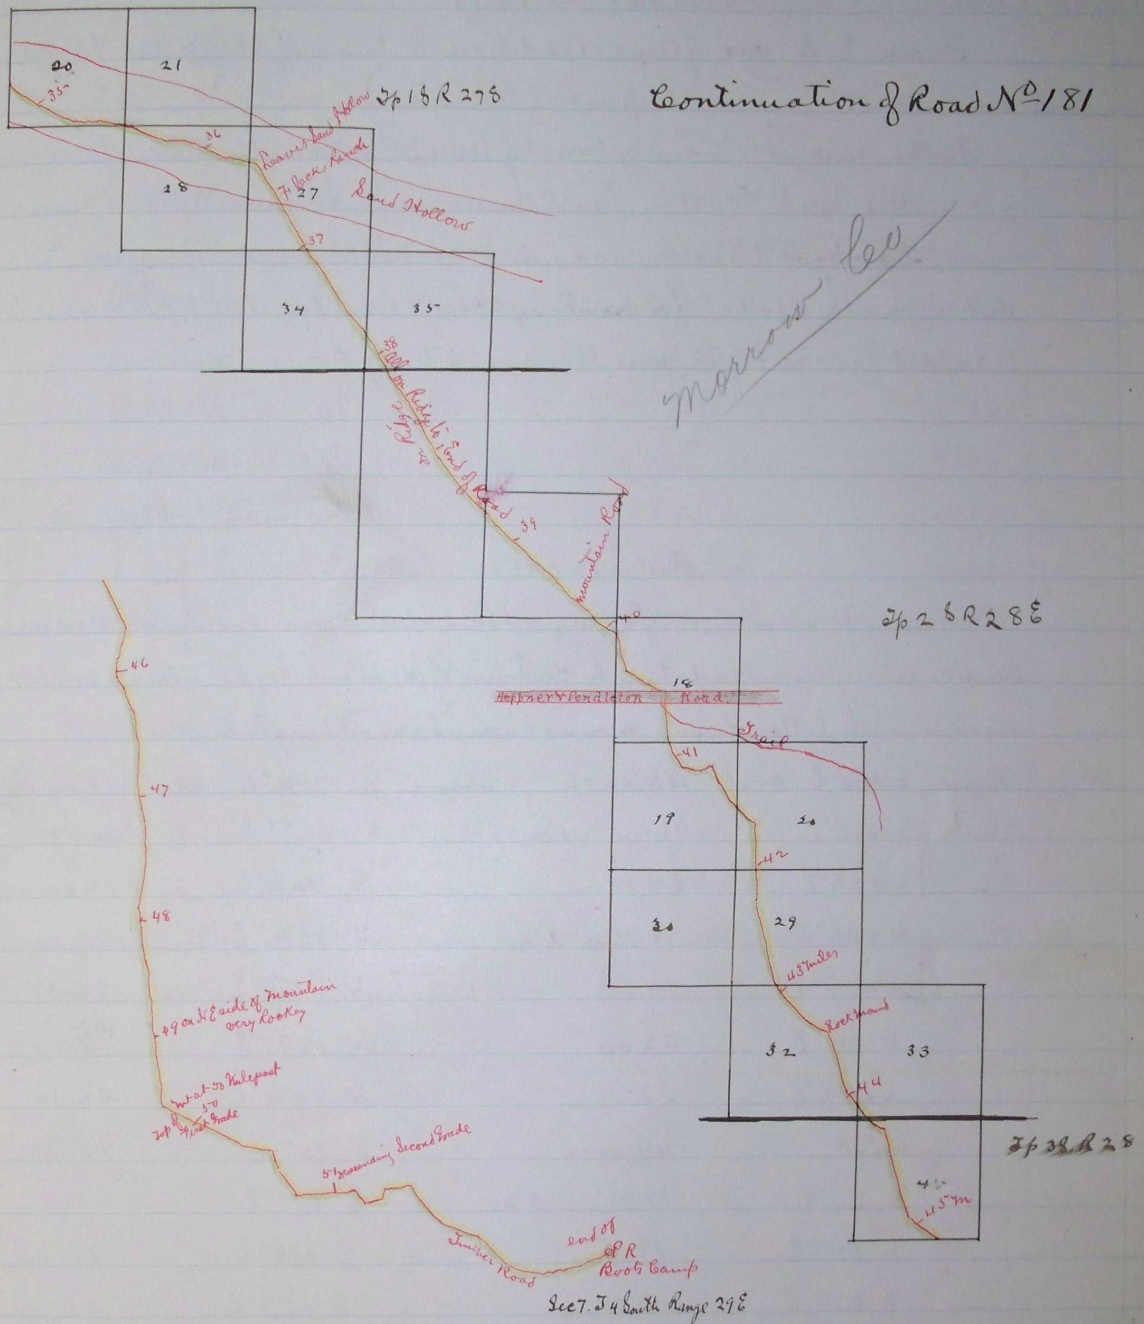 Continuation of Road No 181
Tp 1 S R 27 E
20
21
35
36
Leaves Sand Hollow
Fleck Ranch
28
27
Sand Hollow
37
34
35
38
all on Ridge to End of Road
on Ridge
Morrow Co
39
Mountain Road
40
Tp 2 S R 28 E
18
Heppner & Pendleton Road
Trail
41
19
20
42
30
29
43 miles
Rock mand
32
33
44
Tp 3 S R 28
4
45 m
46
47
48
49 on N E side of Mountain
very Rockey
Top of Mt at 50 Milepost
50
First Grade
51 Descending Second Grade
Juniper Road
end of
P R
Boots Camp
Sec 7. T 4 South Range 29 E